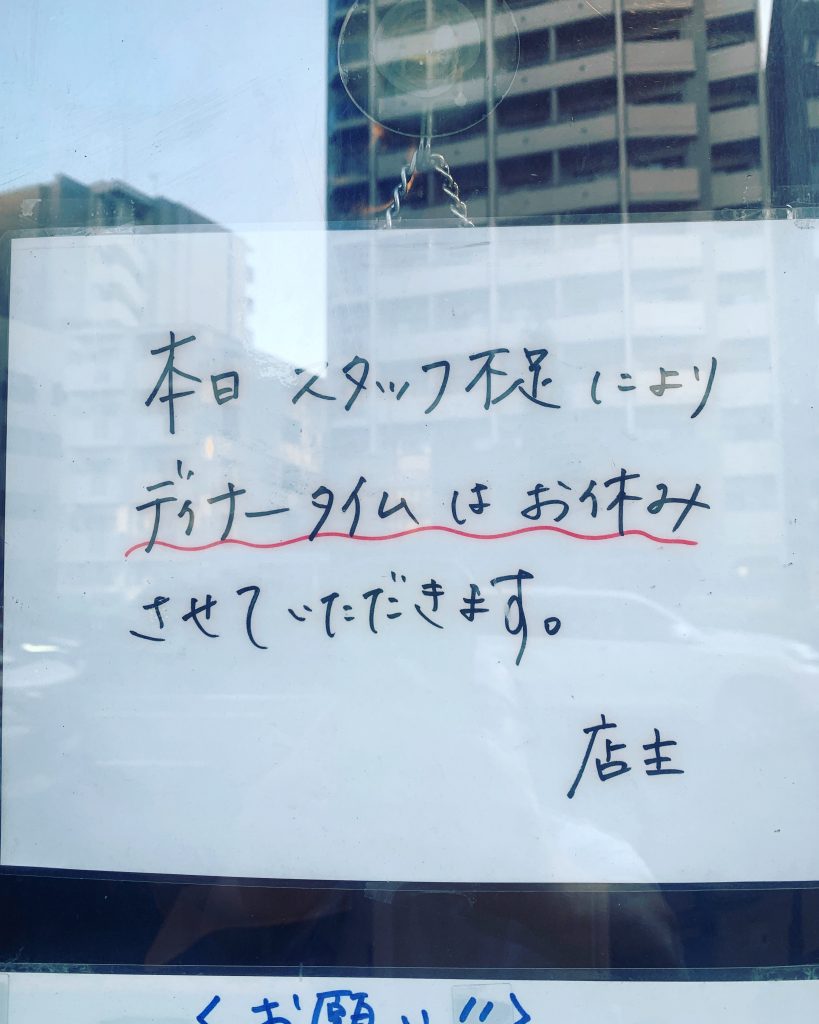 本日 スタッフ不足により
ディナータイムはお休み
させていただきます。
店主
〈お願い!!〉